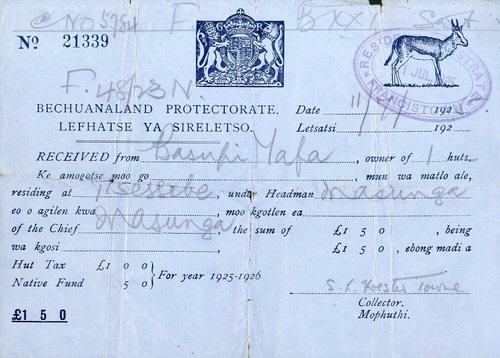 No 5784 F. B XXI East
No 21339
F. 48/23 N.
RESIDENT MAGISTRATE
JUL
FRANCISTOWN
BECHUANALAND PROTECTORATE.
LEFHATSE YA SIRELETSO.
Date 11/7/ 192
Letsatsi 192
RECEIVED from Basupi Tafa, owner of 1 huts.
Ke amogotse moo go , mun wa matlo ale,
residing at Tsessebe, under Headman Masunga
eo o agilen kwa , moo kgotlen ea
of the Chief Masunga, the sum of £1 5 0, being
wa kgosi , £1 5 0, ebong madi a
Hut Tax £1 0 0
Native Fund 5 0
For year 1925-1926
£1 5 0
Collector.
Mophuthi.